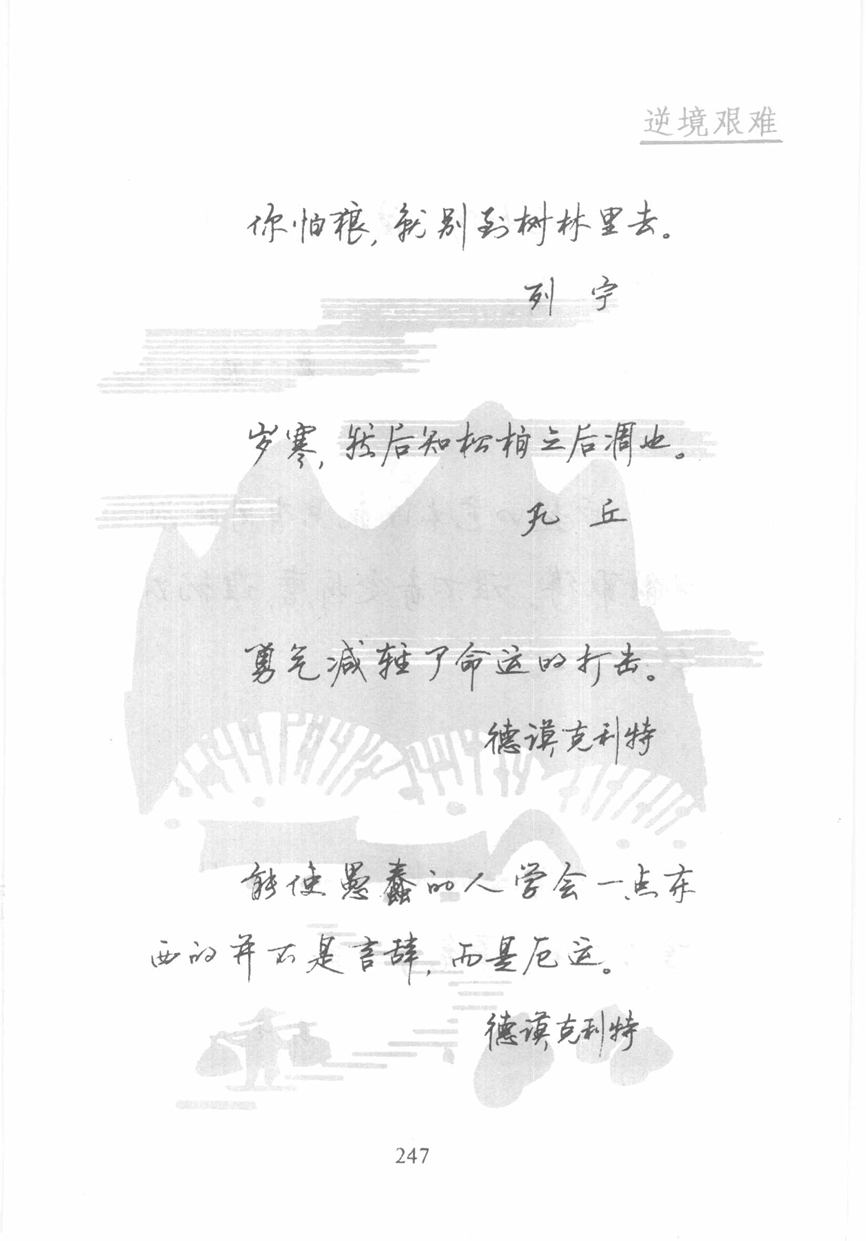 逆境艰难
你怕狼,就别到树林里去。
列 宁
岁寒,然后知松柏之后凋也。
孔 丘
勇气减轻了命运的打击。
德谟克利特
能使愚蠢的人学会一点东
西的并不是言辞,而是厄运。
德谟克利特
247